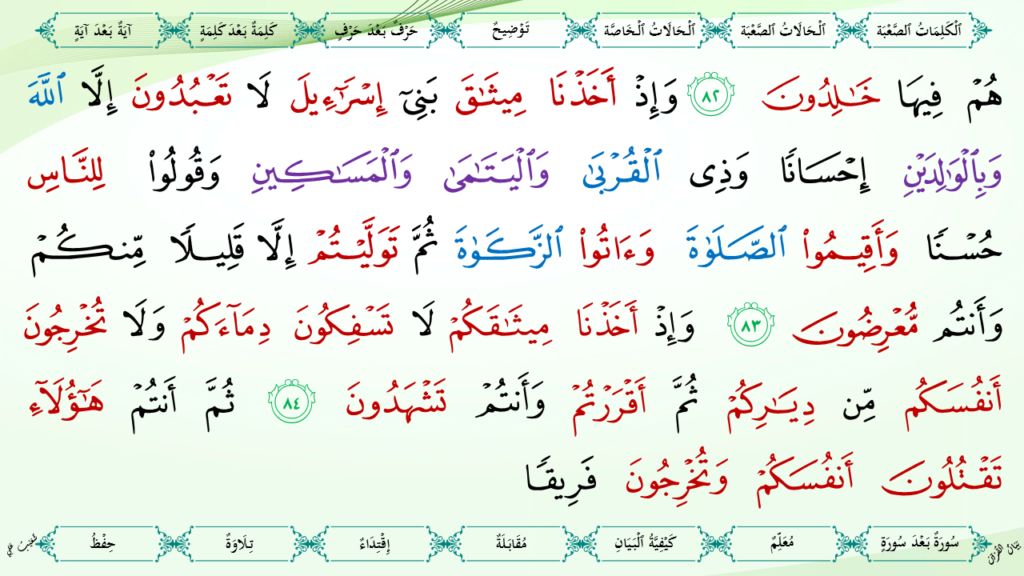 ٱلْكَلِمَاتُ ٱلصَّعْبَة
ٱلْحَالَاتُ ٱلصَّعْبَة
ٱلْحَالَاتُ ٱلْخَاصَّة
تَوْضِيحٌ
حَرْفٌ بَعْدَ حَرْفٍ
كَلِمَةٌ بَعْدَ كَلِمَةٍ
آيَةٌ بَعْدَ آيَةٍ
هُمْ فِيهَا خَـٰلِدُونَ ٨٢ وَإِذْ أَخَذْنَا مِيثَـٰقَ بَنِىٓ إِسْرَٰٓءِيلَ لَا تَعْبُدُونَ إِلَّا ٱللَّهَ
وَبِٱلْوَٰلِدَيْنِ إِحْسَانًا وَذِى ٱلْقُرْبَىٰ وَٱلْيَتَـٰمَىٰ وَٱلْمَسَـٰكِينِ وَقُولُوا۟ لِلنَّاسِ
حُسْنًا وَأَقِيمُوا۟ ٱلصَّلَوٰةَ وَءَاتُوا۟ ٱلزَّكَوٰةَ ثُمَّ تَوَلَّيْتُمْ إِلَّا قَلِيلًا مِّنكُمْ
وَأَنتُم مُّعْرِضُونَ ٨٣ وَإِذْ أَخَذْنَا مِيثَـٰقَكُمْ لَا تَسْفِكُونَ دِمَآءَكُمْ وَلَا تُخْرِجُونَ
أَنفُسَكُم مِّن دِيَـٰرِكُمْ ثُمَّ أَقْرَرْتُمْ وَأَنتُمْ تَشْهَدُونَ ٨٤ ثُمَّ أَنتُمْ هَـٰٓؤُلَآءِ
تَقْتُلُونَ أَنفُسَكُمْ وَتُخْرِجُونَ فَرِيقًا
سُورَةٌ بَعْدَ سُورَةٍ
مُعَلِّمٌ
كَيْفِيَّةُ ٱلْبَيَانِ
مُقَابَلَةٌ
إِقْتِدَاءٌ
تِلَاوَةٌ
حِفْظٌ